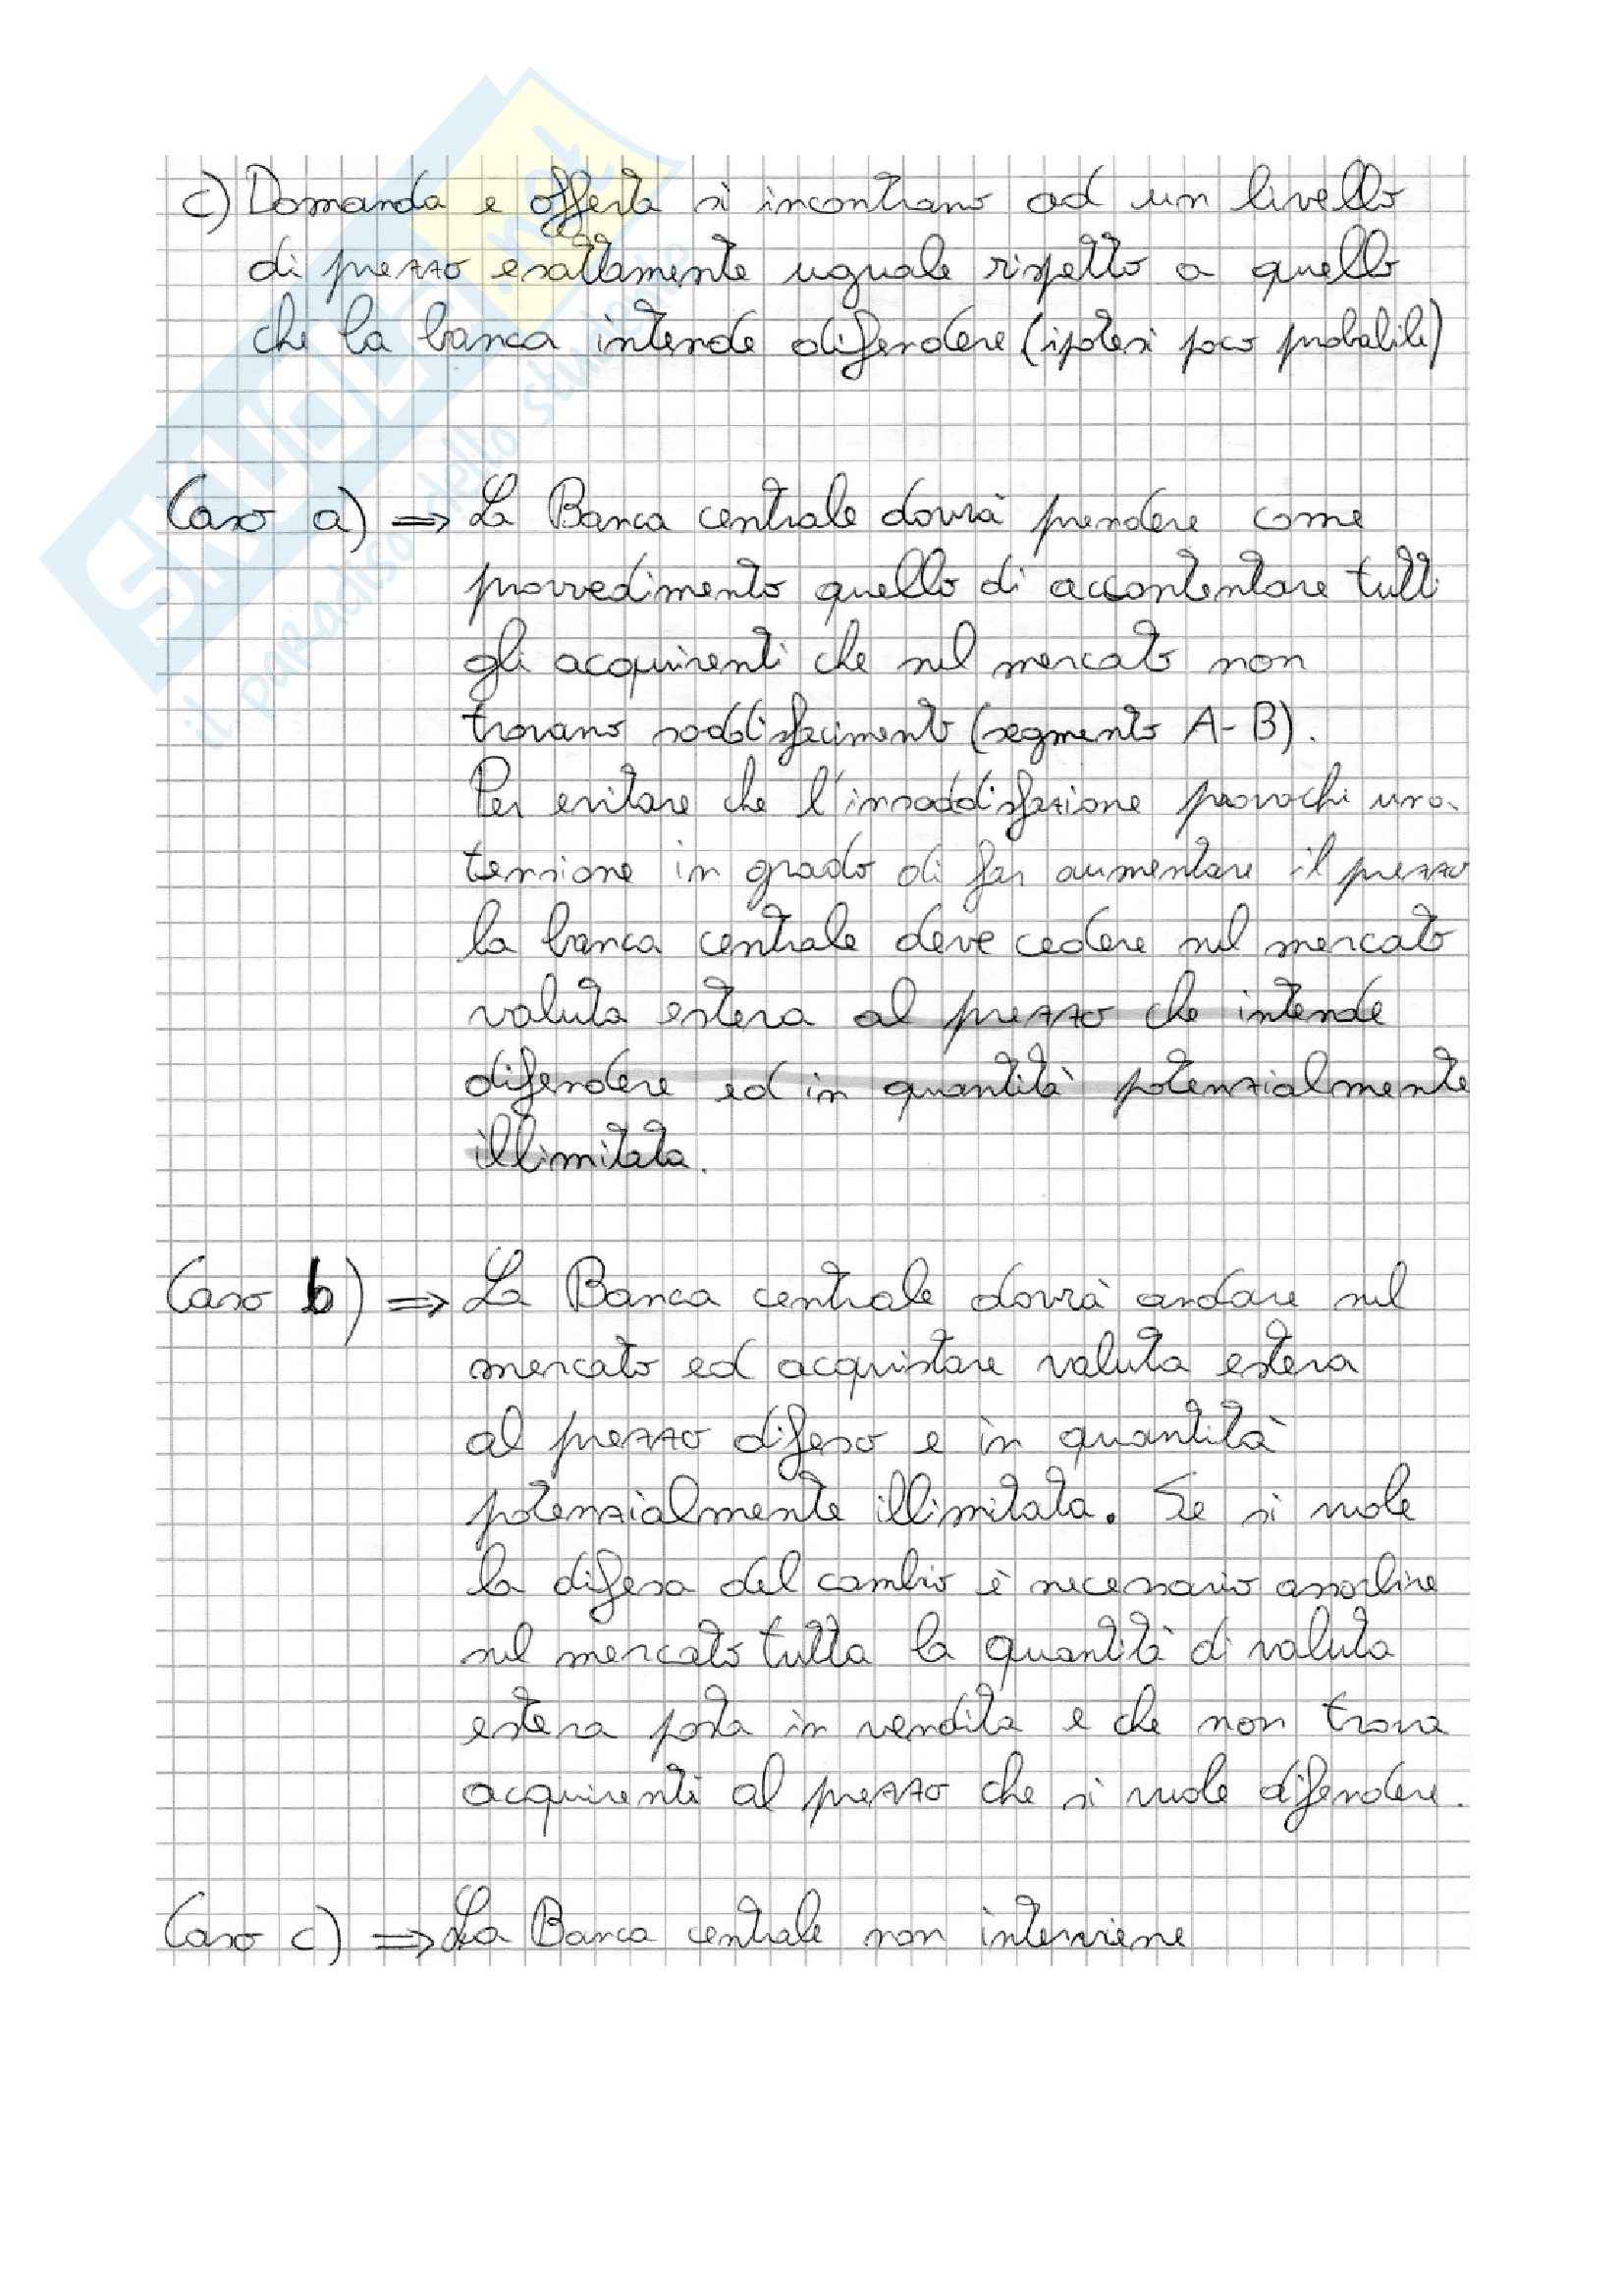 c) Domanda e offerta si incontrano ad un livello
di prezzo esattamente uguale rispetto a quello
che la banca intende difendere (ipotesi poco probabile)
Caso a) => La Banca centrale dovrà prendere come
provvedimento quello di accontentare tutti
gli acquirenti che sul mercato non
trovano soddisfacimento (segmento A-B).
Per evitare che l'insoddisfazione provochi una
tensione in grado di far aumentare il prezzo
la banca centrale deve cedere sul mercato
valuta estera al prezzo che intende
difendere ed in quantità potenzialmente
illimitata.
Caso b) => La Banca centrale dovrà andare sul
mercato ed acquistare valuta estera
al prezzo difeso e in quantità
potenzialmente illimitata. Se si vuole
la difesa del cambio è necessario assorbire
sul mercato tutta la quantità di valuta
estera posta in vendita e che non trova
acquirenti al prezzo che si vuole difendere.
Caso c) => La Banca centrale non interviene
SKUOLA.net
il paradiso dello studente